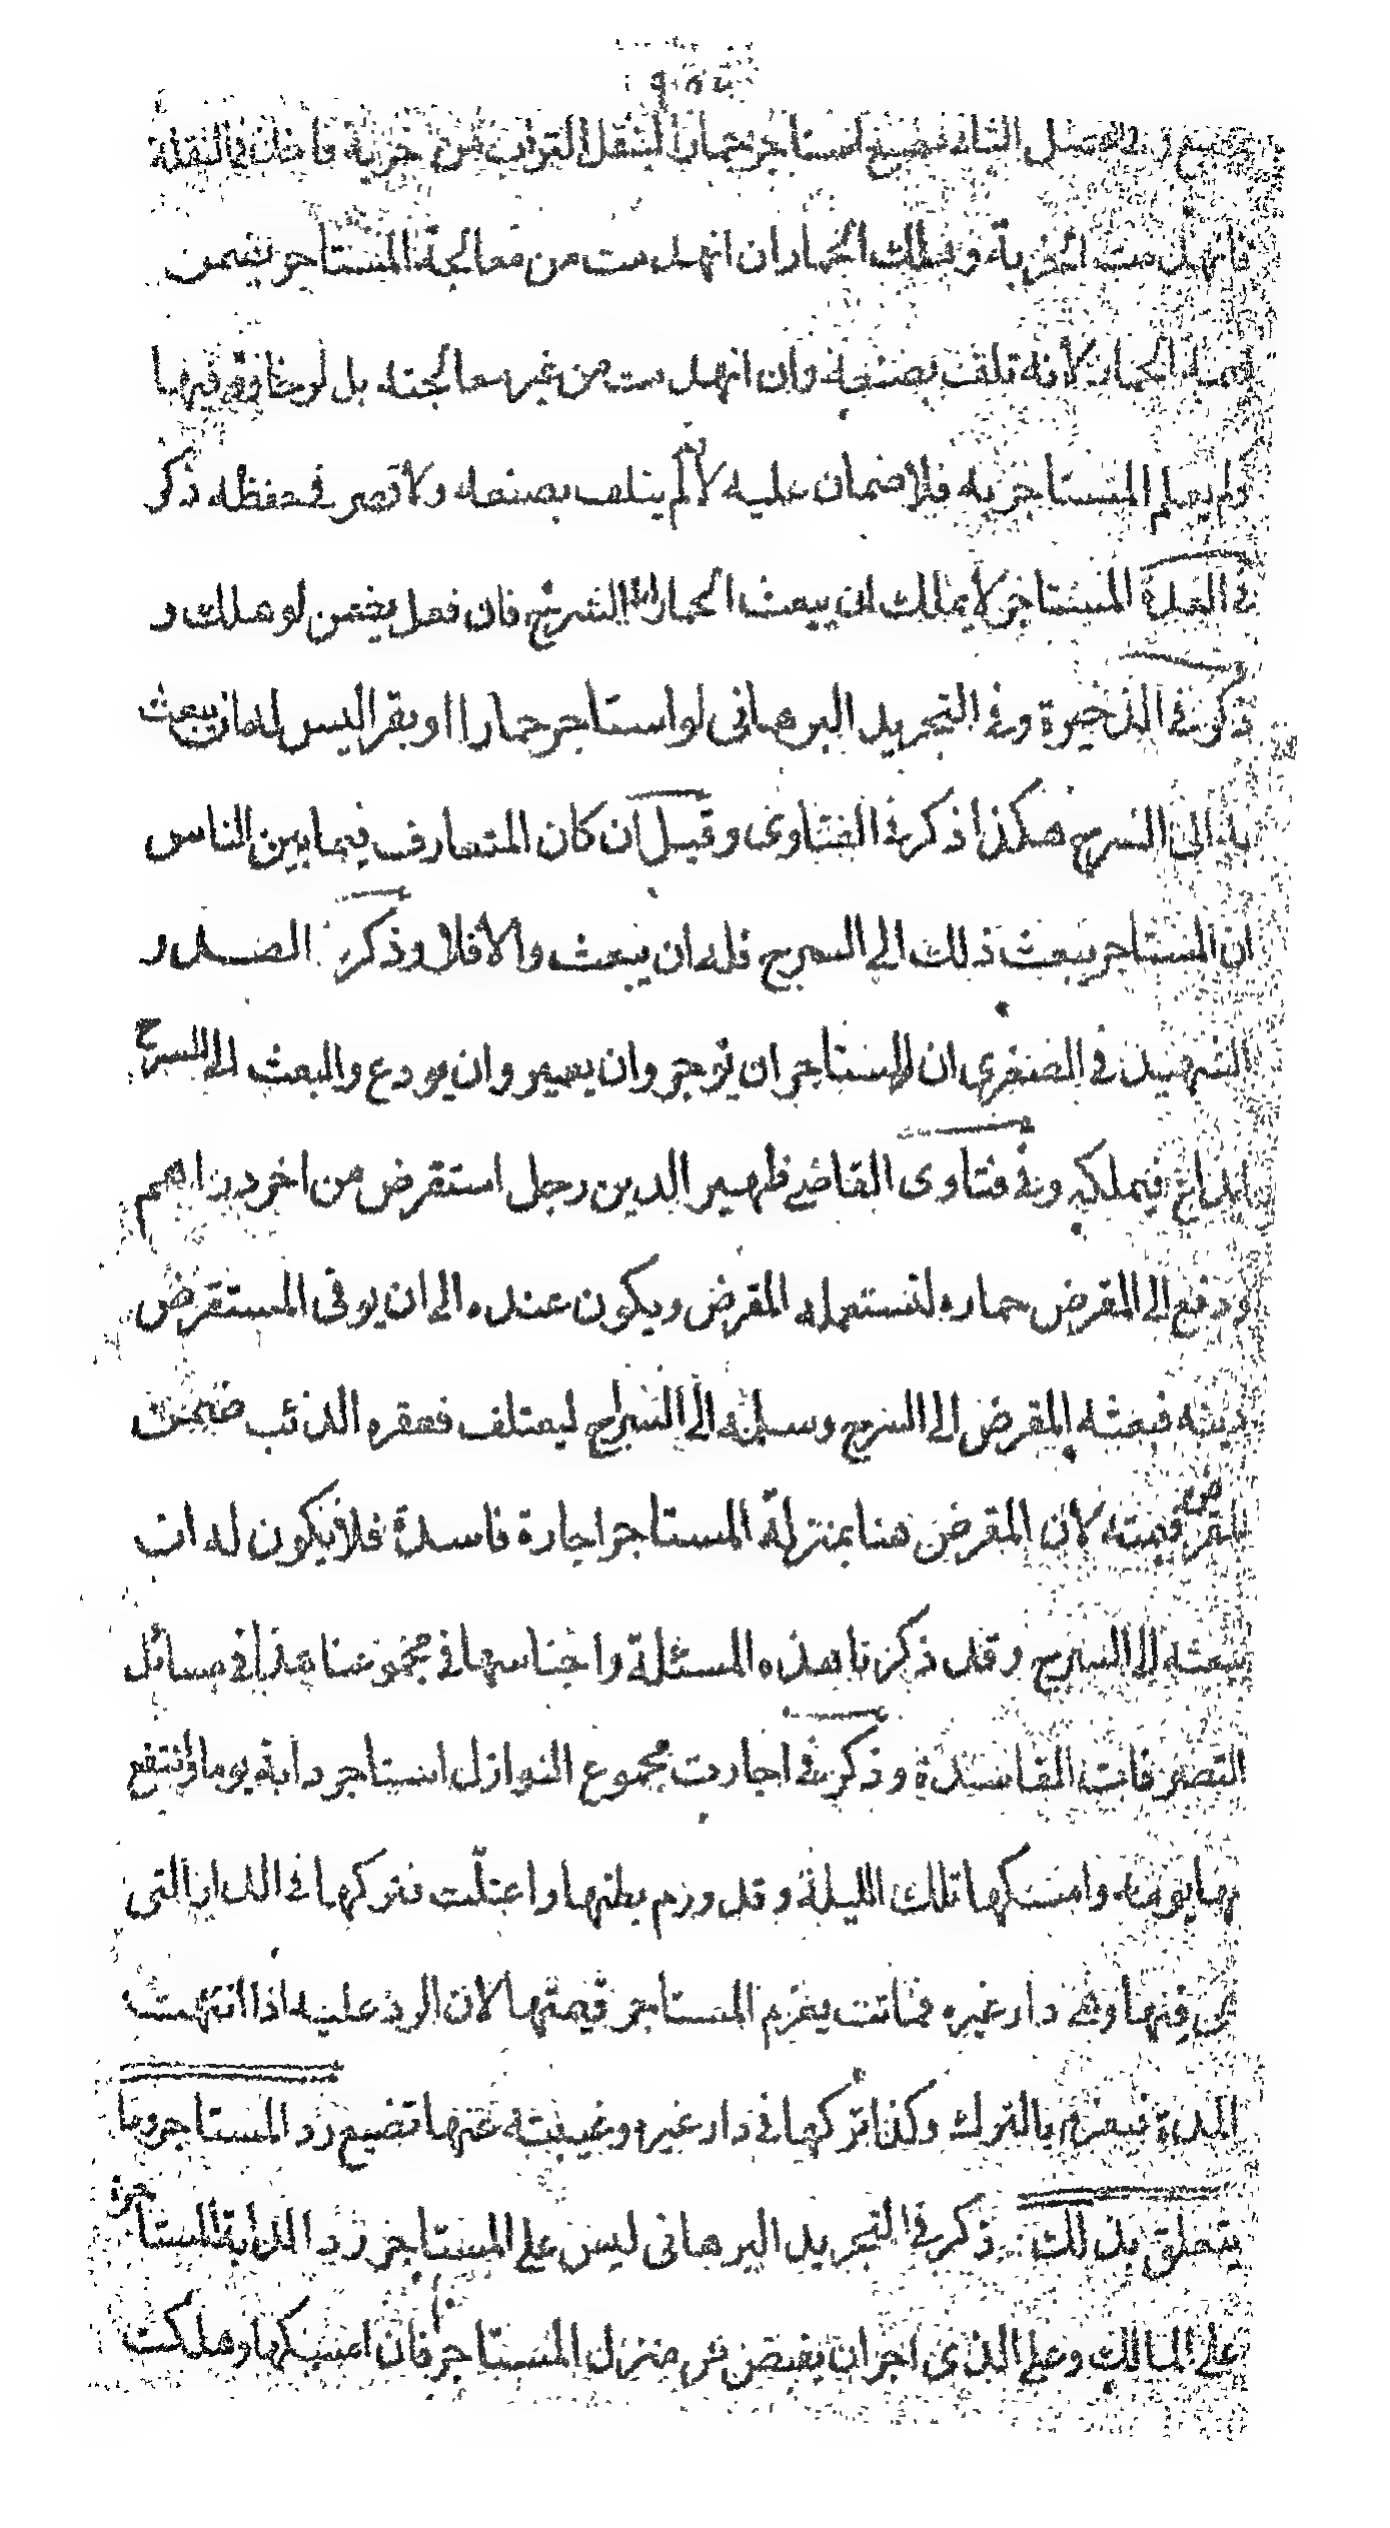 وفي الفصل الثاني استاجر حمارا لينقل التراب من خربة فاخذ في النقلة
فانهدمت الخربة وهلك الحمار ان انهدمت من معالجة المستاجر يضمن
قيمة الحمار لانه تلف بصنعه وان انهدمت من غير معالجته بل لرخاوة فيها
ولم يعلم المستاجر به فلا ضمان عليه لانه لم يتلف بصنعه ولا قصر في حفظه ذكر
في العدة المستاجر لا يملك ان يبعث الحمار الى السرح فان فعل يضمن لو هلك و
ذكر في الذخيرة وفي التجريد البرهاني لو استاجر حمارا او بقرا ليس له ان يبعث
به الى السرح هكذا ذكر في الفتاوى وقيل ان كان المتعارف فيما بين الناس
ان المستاجر يبعث ذلك الى السرح فله ان يبعث والا فلا وذكر الصدر
الشهيد في الصغرى ان للمستاجر ان يوجر وان يعير وان يودع والبعث الى السرح
ايداع فيملكه وفي فتاوى القاضي ظهير الدين رجل استقرض من اخر دراهم
ودفع الى المقرض حماره ليستعمله المقرض ويكون عنده الى ان يوفى المستقرض
دينه فبعثه المقرض الى السرح وسلمه الى السراح ليعتلف فعقره الذئب ضمن
المقرض قيمته لان المقرض هنا بمنزلة المستاجر اجارة فاسدة فلا يكون له ان
يبعثه الى السرح وقد ذكرنا هذه المسئلة واجناسها في مجموعنا هذا في مسائل
التصرفات الفاسدة وذكر في اجارت مجموع النوازل استاجر دابة يوما وانتفع
بها يومه وامسكها تلك الليلة وقد ورم بطنها واعتلت فتركها في الدار التي
هي فيها وهي دار غيره فماتت يغرم المستاجر قيمتها لان الرد عليه اذا انتهت
المدة فيغرم بالترك وكذا تركها في دار غيره وغيبته عنها تضيع رد المستاجر وما
يتعلق بذلك ذكر في التجريد البرهاني ليس على المستاجر رد الدابة المستاجرة
على المالك وعلى الذي اجر ان يقبض من منزل المستاجر فان امسكها وهلكت